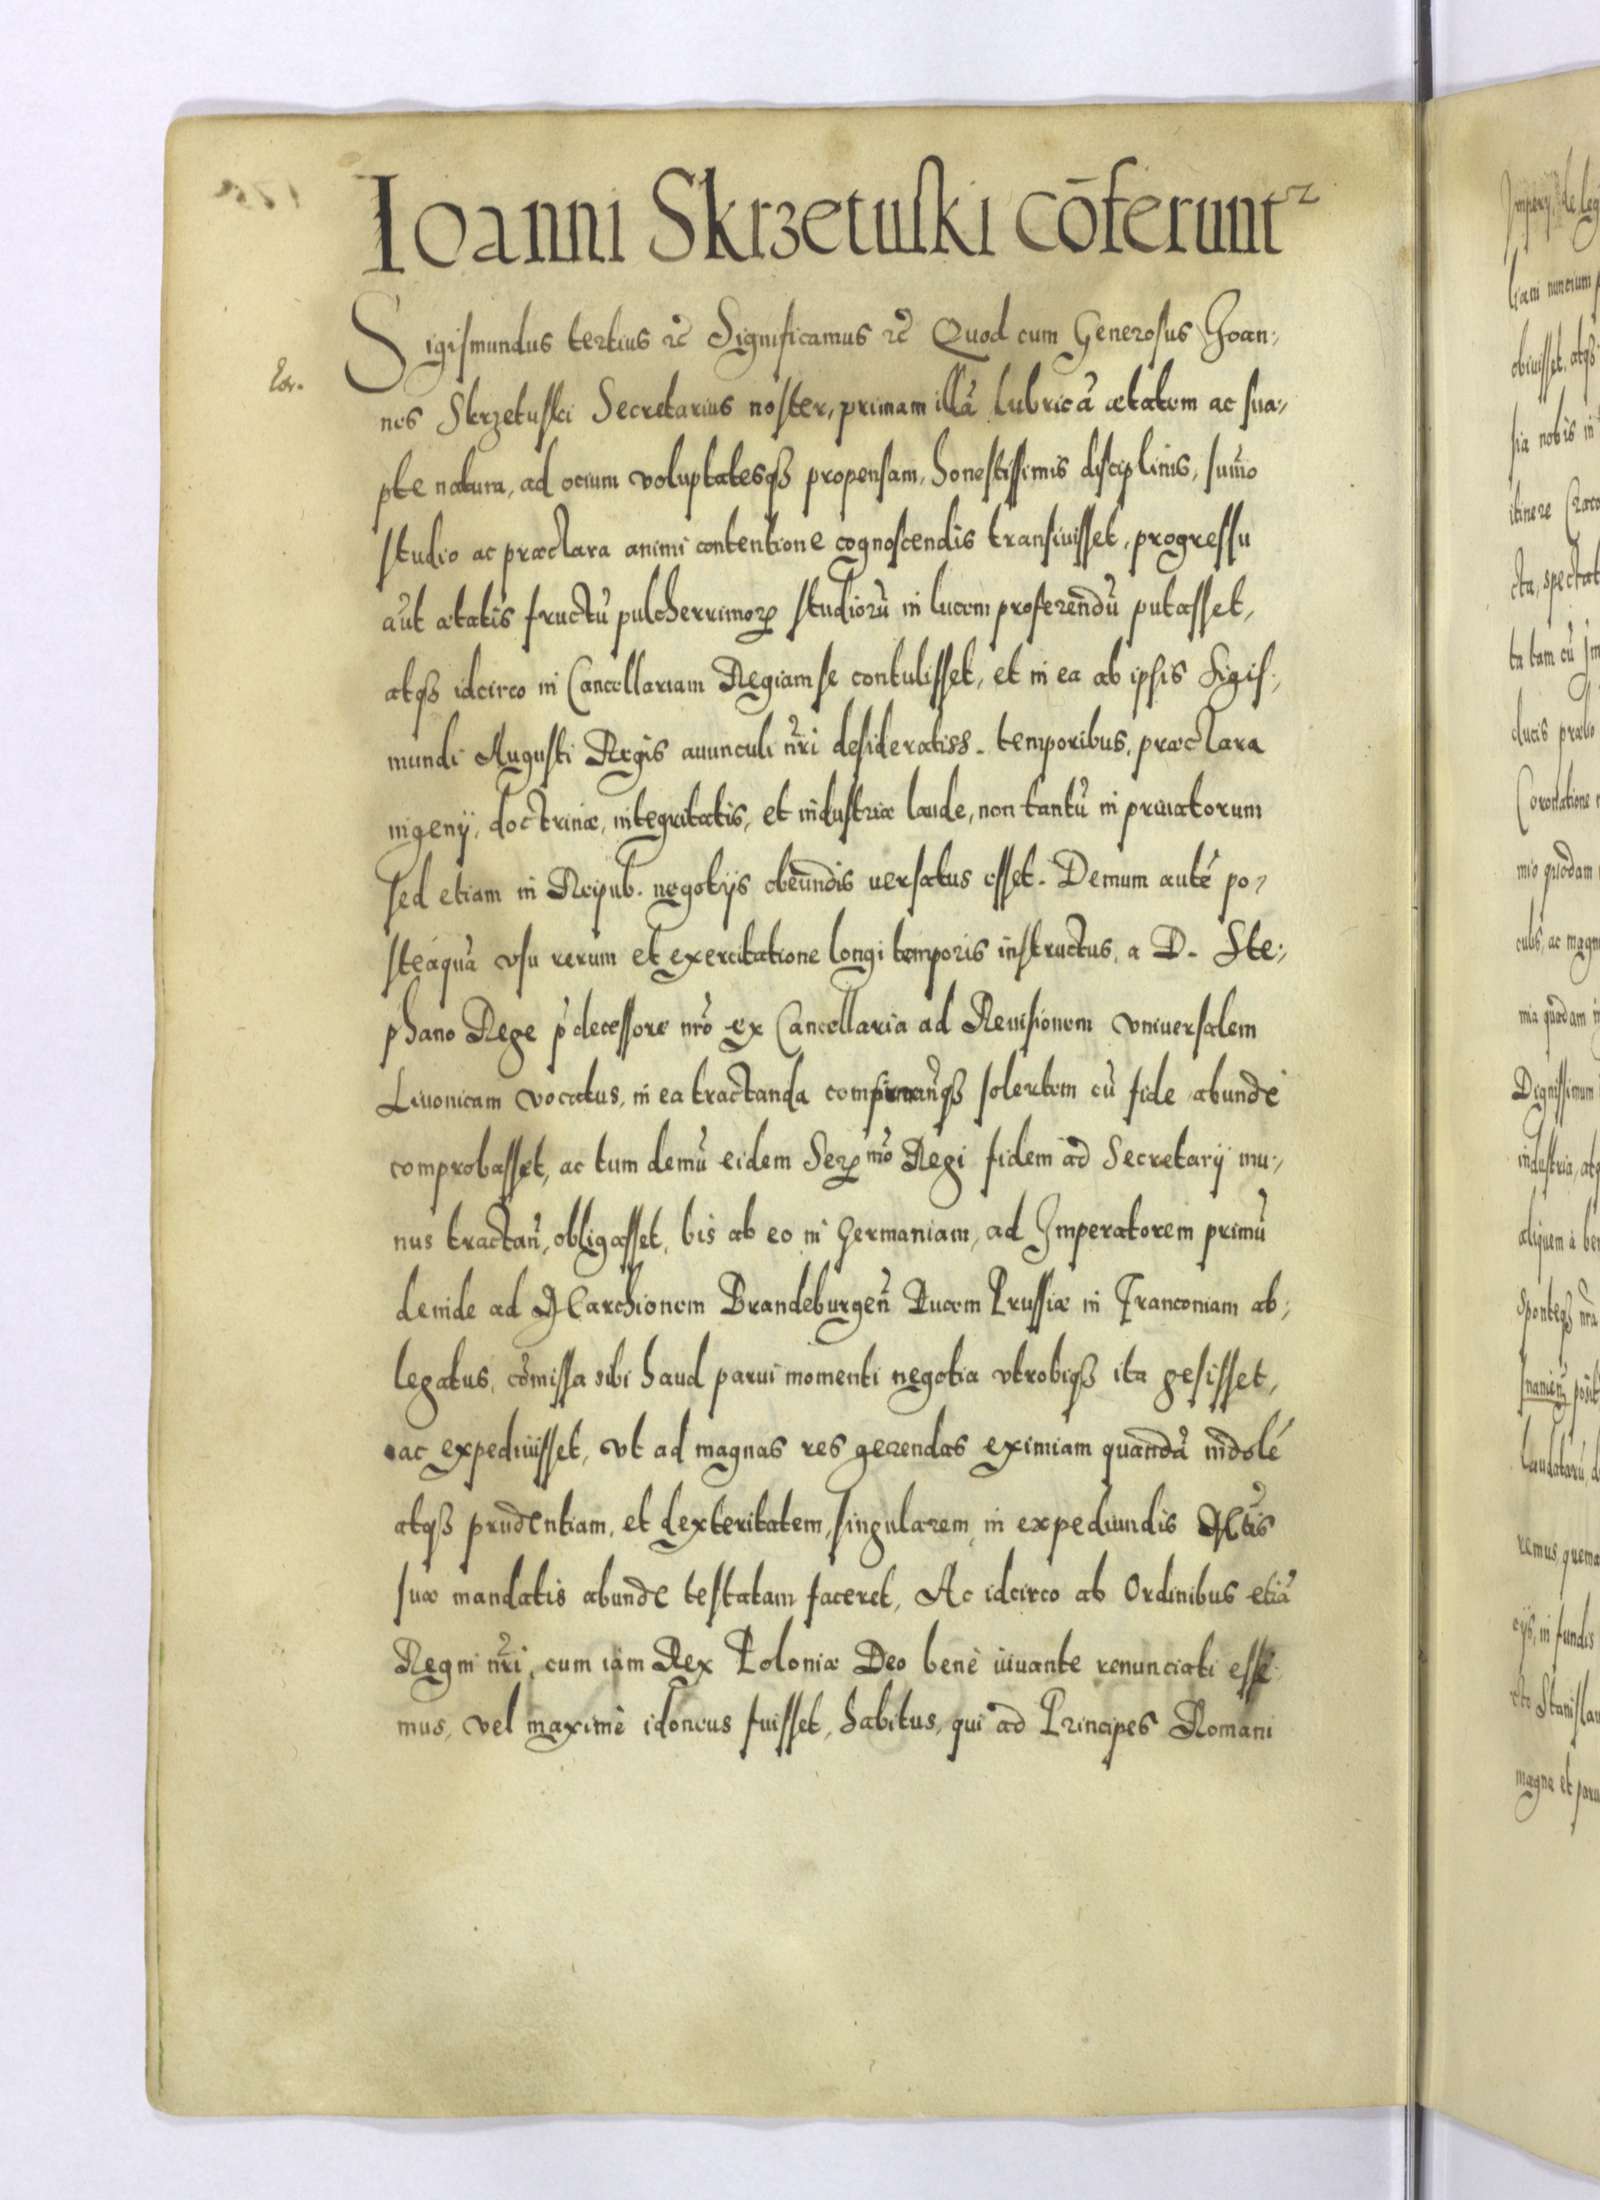 Ioanni Skrzetuski cōferunt²
Sigismundus tertius ꝛc̃ Significamus ꝛc̃ Quod cum Generosus Joan:,
nes Skrzetuski Secretarius noster, primam illā lubricā ætatem ac sua:,
pte natura, ad ocium voluptatesqꝫ propensam, honestissimis disciplinis, sum̄o
studio ac præclara animi contentione cognoscendis transiuisset, progressu
aūt ætatis fructū pulcherrimoꝝ studiorū in lucem proferendū putasset,
atqꝫ idcirco in Cancellariam Regiam se contulisset, et in ea ab ipsis Sigis:,
mundi Augusti Regis auunculi nr̄i desideratiss. temporibus, præclara
ingenij, doctrinæ, integritatis, et industriæ laude, non tantū in priuatorum
sed etiam in Reipub. negotijs obeundis uersatus esset. Demum autē po:,
steaquā vsu rerum et exercitatione longi temporis instructus, a D. Ste:,
phano Rege p̄decessore nr̄o ex Cancellaria ad Reuisionem vniuersalem
Liuonicam vocatus, in ea tractanda solertem cū fide abundè
comprobasset, ac tum demū eidem Sereꝝ mo Regi fidem ad Secretarij mu:,
nus tractan̄, obligasset, bis ab eo in Germaniam, ad Imperatorem primū
deinde ad Marchionem Brandeburgen̄ Ducem Prussiæ in Franconiam ab:,
legatus, com̄issa sibi haud parui momenti negotia vtrobiqꝫ ita gesisset,
ac expediuisset, vt ad magnas res gerendas eximiam quandā indolē
atqꝫ prudentiam, et dexteritatem, singularem in expediundis Mt̄is
suæ mandatis abunde testatam faceret, Ac idcirco ab Ordinibus etiā
Regni nr̄i, cum iam Rex Poloniæ Deo benè iuuante renunciati esse
mus, vel maximè idoneus fuisset, habitus, qui ad Principes Romani